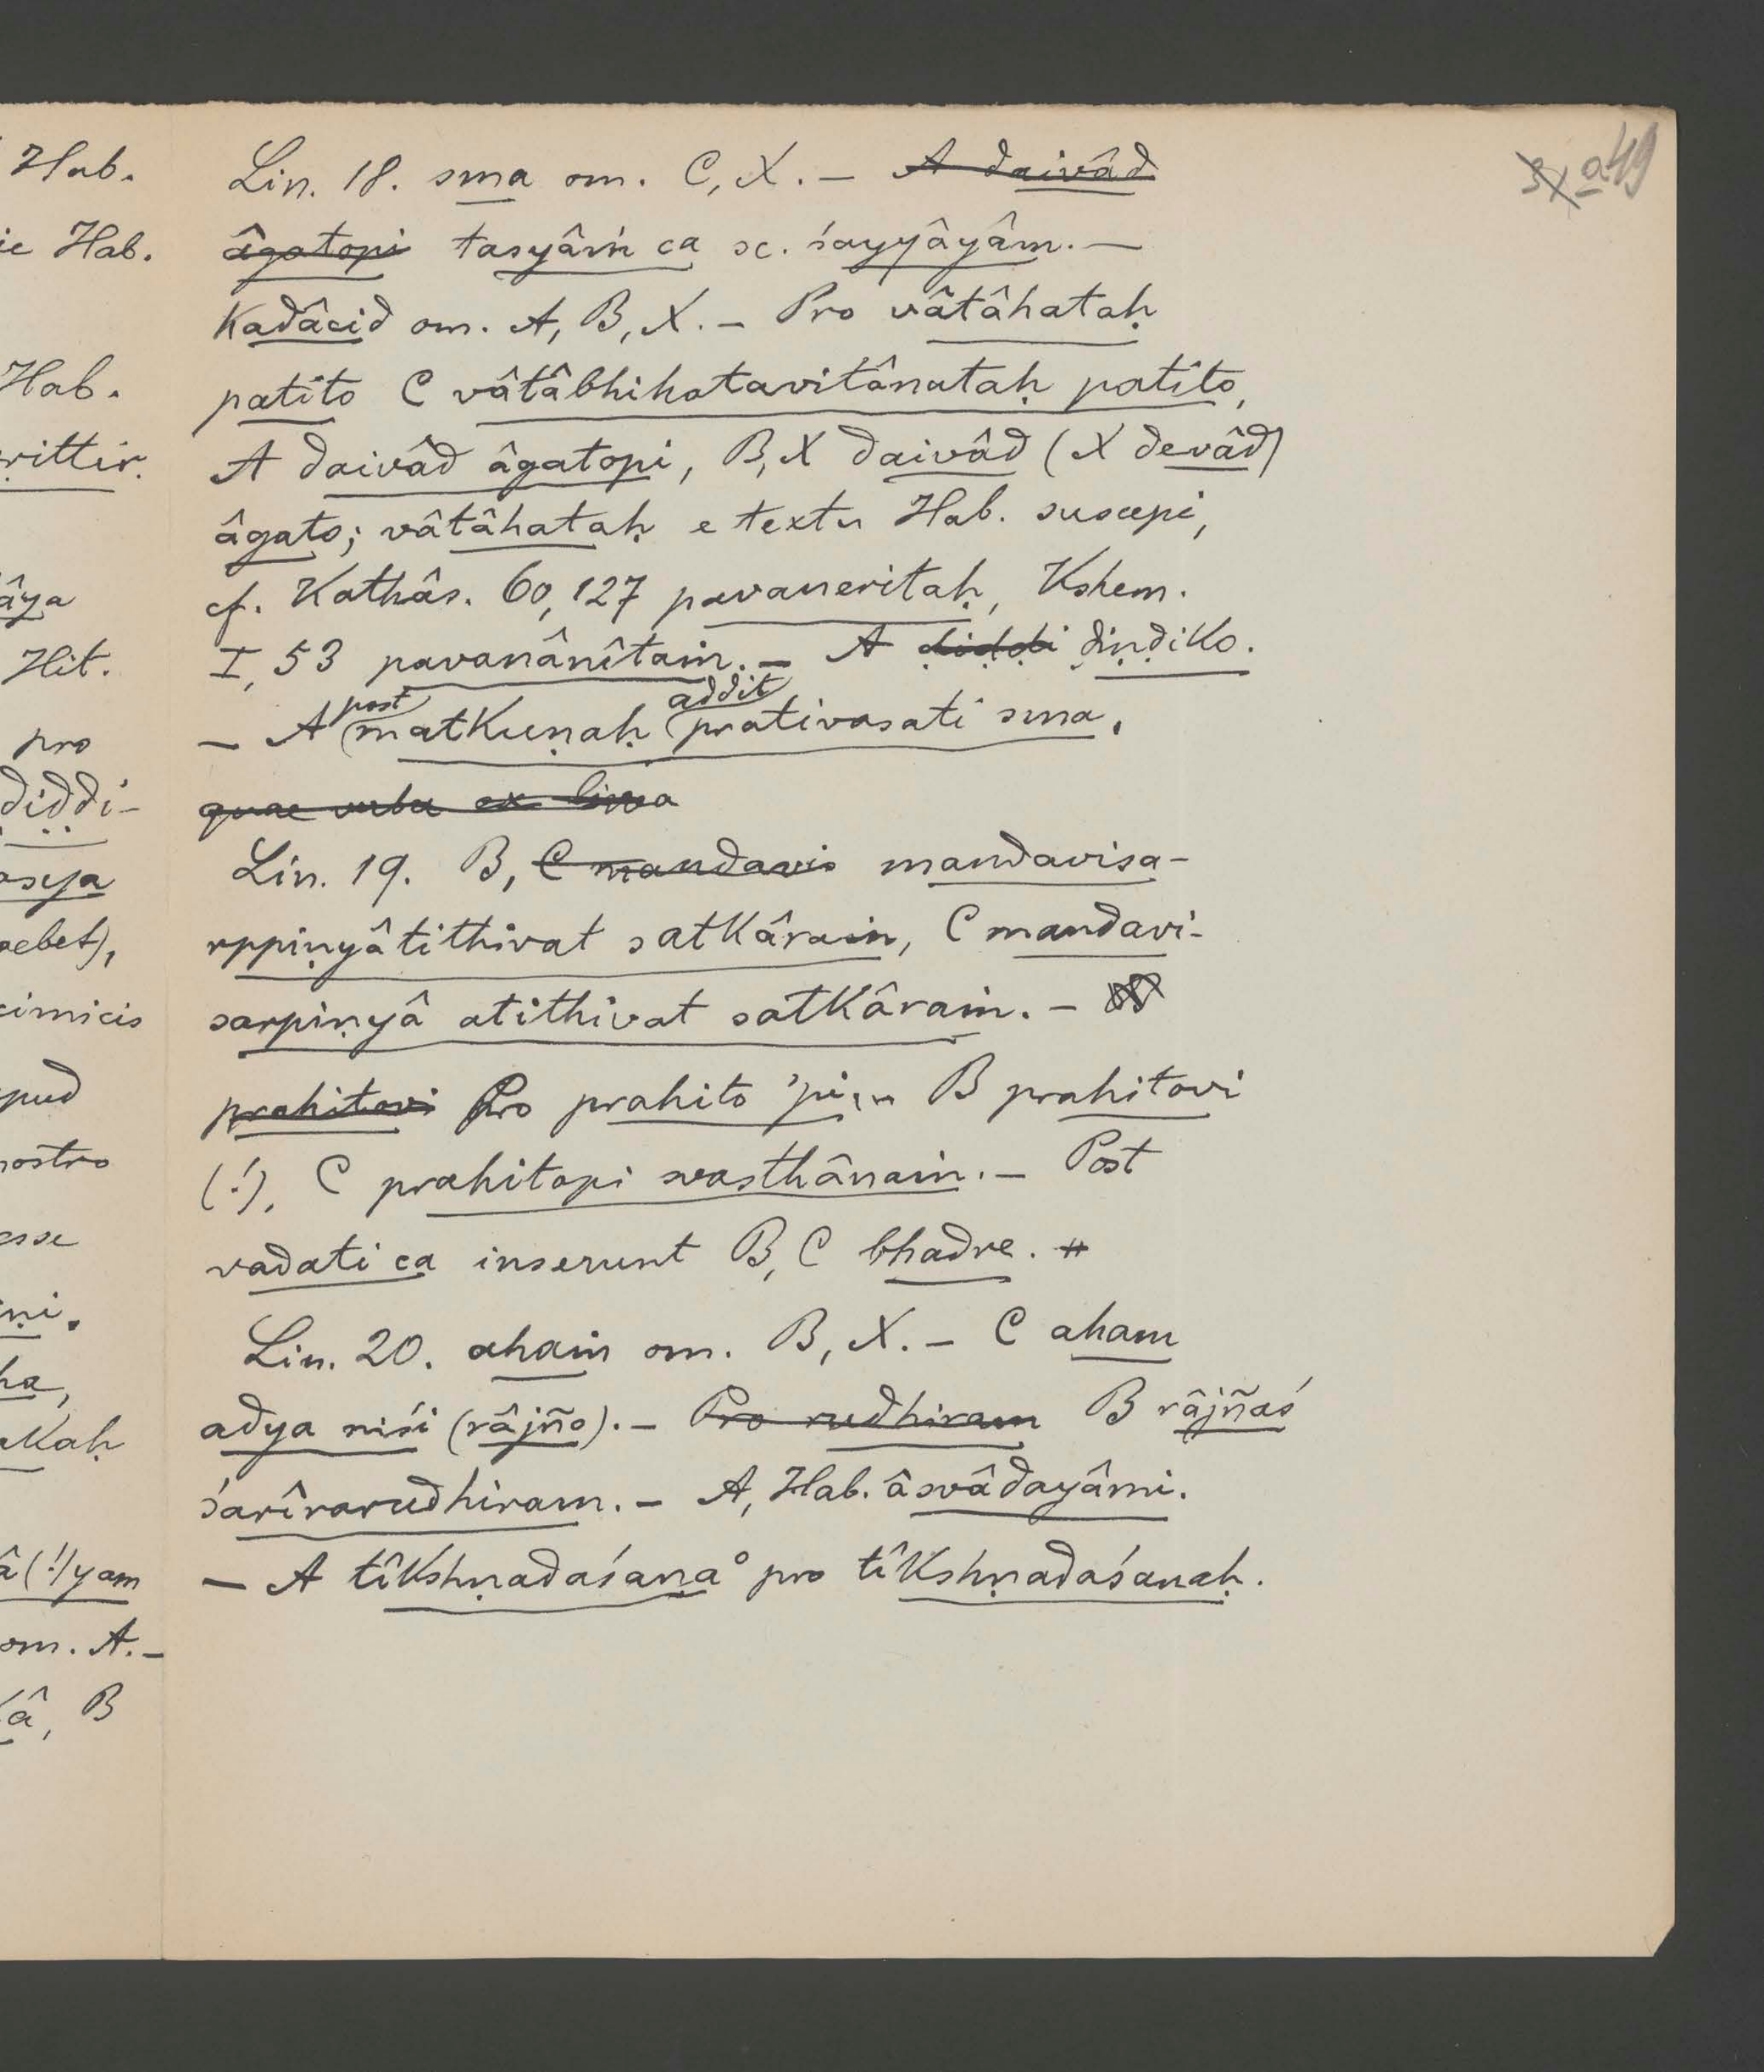 Hab.
ie Hab.
Hab.
rittir.
âya
Hit.
pro
ḍiḍḍi-
asya
cimicis
pud
nostro
esse
ha,
akaḥ
â(!)yam
om. A.-
kâ, B
a 49
Lin. 18. sma om. C, X. - A daivâd
âgatopi tasyâṁ ca sc. śayyâyâm. -
kadâcid om. A, B, X. - Pro vâtâhataḥ
patito C vâtâbhihatavitânataḥ patito,
A daivâd âgatopi, B, X daivâd (X devâd)
âgato; vâtâhataḥ e textu Hab. suscepi,
cf. Kathâs. 60, 127 pavaneritaḥ, Kshem.
I, 53 pavanânîtaṁ. - A ḍiḍḍi ḍiṇḍiko.
- A post matkuṇaḥ addit prativasati sma.
quae verba ex linea
Lin. 19. B, C mandavis mandavisa-
rppiṇyâtithivat satkâraṁ, C mandavi-
sarpiṇyâ atithivat satkâraṁ. -
prahitovi Pro prahito 'pi B prahitovi
(!), C prahitopi svasthânaṁ. - Post
vadati ca inserunt B, C bhadre.
Lin. 20. ahaṁ om. B, X. - C aham
adya niśi (râjño). - Pro rudhiram B râjñaś
śarîrarudhiram. - A, Hab. âsvâdayâmi.
- A tîkshṇadaśaṇa° pro tîkshṇadaśanaḥ.